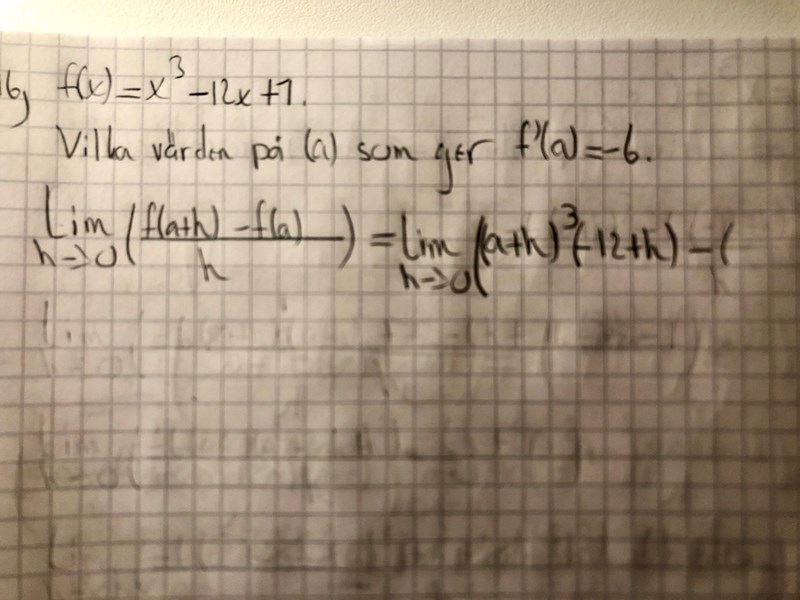 16) f(x)=x³-12x+7.
Vilka värden på (a) som ger f'(a)=-6.
lim h->0 (f(a+h)-f(a) / h) = lim h->0 ((a+h)³(-12+h)-(